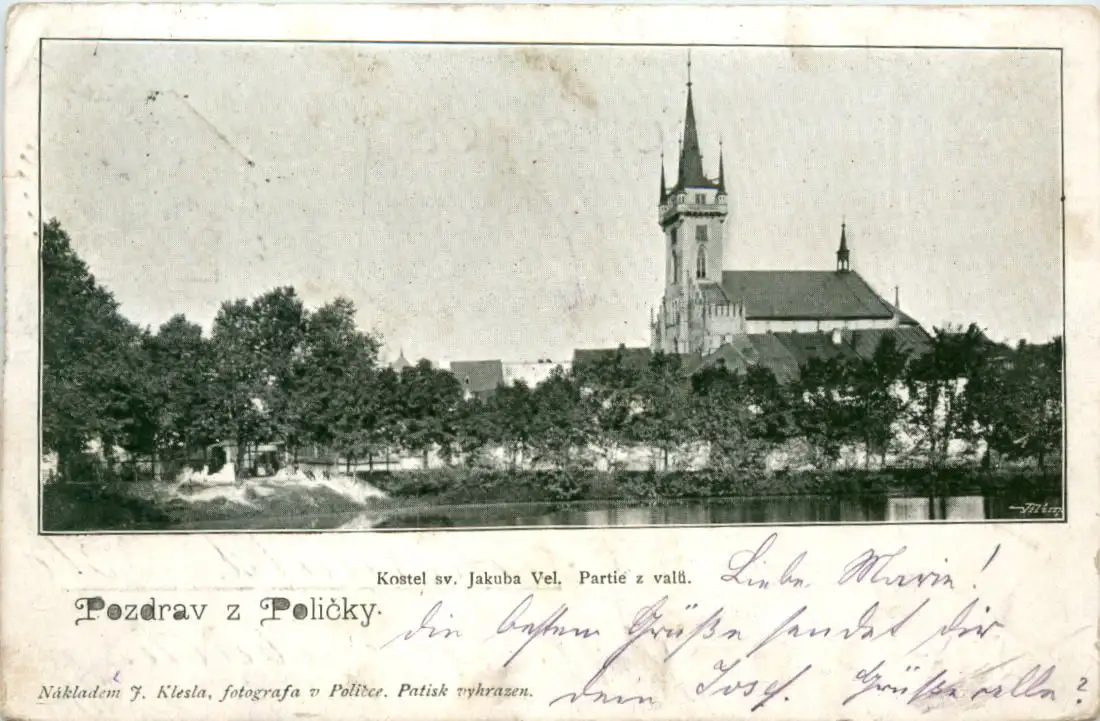 Kostel sv. Jakuba Vel. Partie z valů.
Liebe Marie!
Pozdrav z Poličky.
die besten Grüße sendet dir
dein Josef. Grüße alle?
Nákladem J. Klesla, fotografa v Poličce. Patisk vyhrazen.